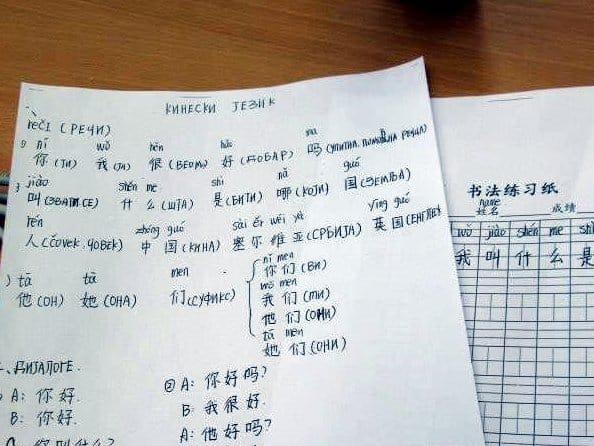 КИНЕСКИ ЈЕЗИК
REČI (РЕЧИ)
nǐ wǒ hěn hǎo ma
你(ТИ) 我(ЈА) 很(ВЕОМА) 好(ДОБАР) 吗(УПИТНА ПОМОЋНА РЕЧЦА)
jiào shén me shì nǎ guó
叫(ЗВАТИ СЕ) 什么(ШТА) 是(БИТИ) 哪(КОЈИ) 国(ЗЕМЉА)
rén zhōng guó sài ěr wéi yà yīng guó
人(ČOVEK, ЧОВЕК) 中国(КИНА) 塞尔维亚(СРБИЈА) 英国(ЕНГЛЕ
tā tā men
他(ОН) 她(ОНА) 们(СУФИКС)
nǐ men
你们(ВИ)
wǒ men
我们(МИ)
他们(ОНИ)
tā men
她们(ОНИ)
、ДИЈАЛОГЕ.
A: 你好.
B: 你好.
你叫什么?
② A: 你好吗?
B: 我很好.
A: 他好吗?
书法练习纸
name
姓名 成绩
wǒ jiào shén me shì
我叫什么是